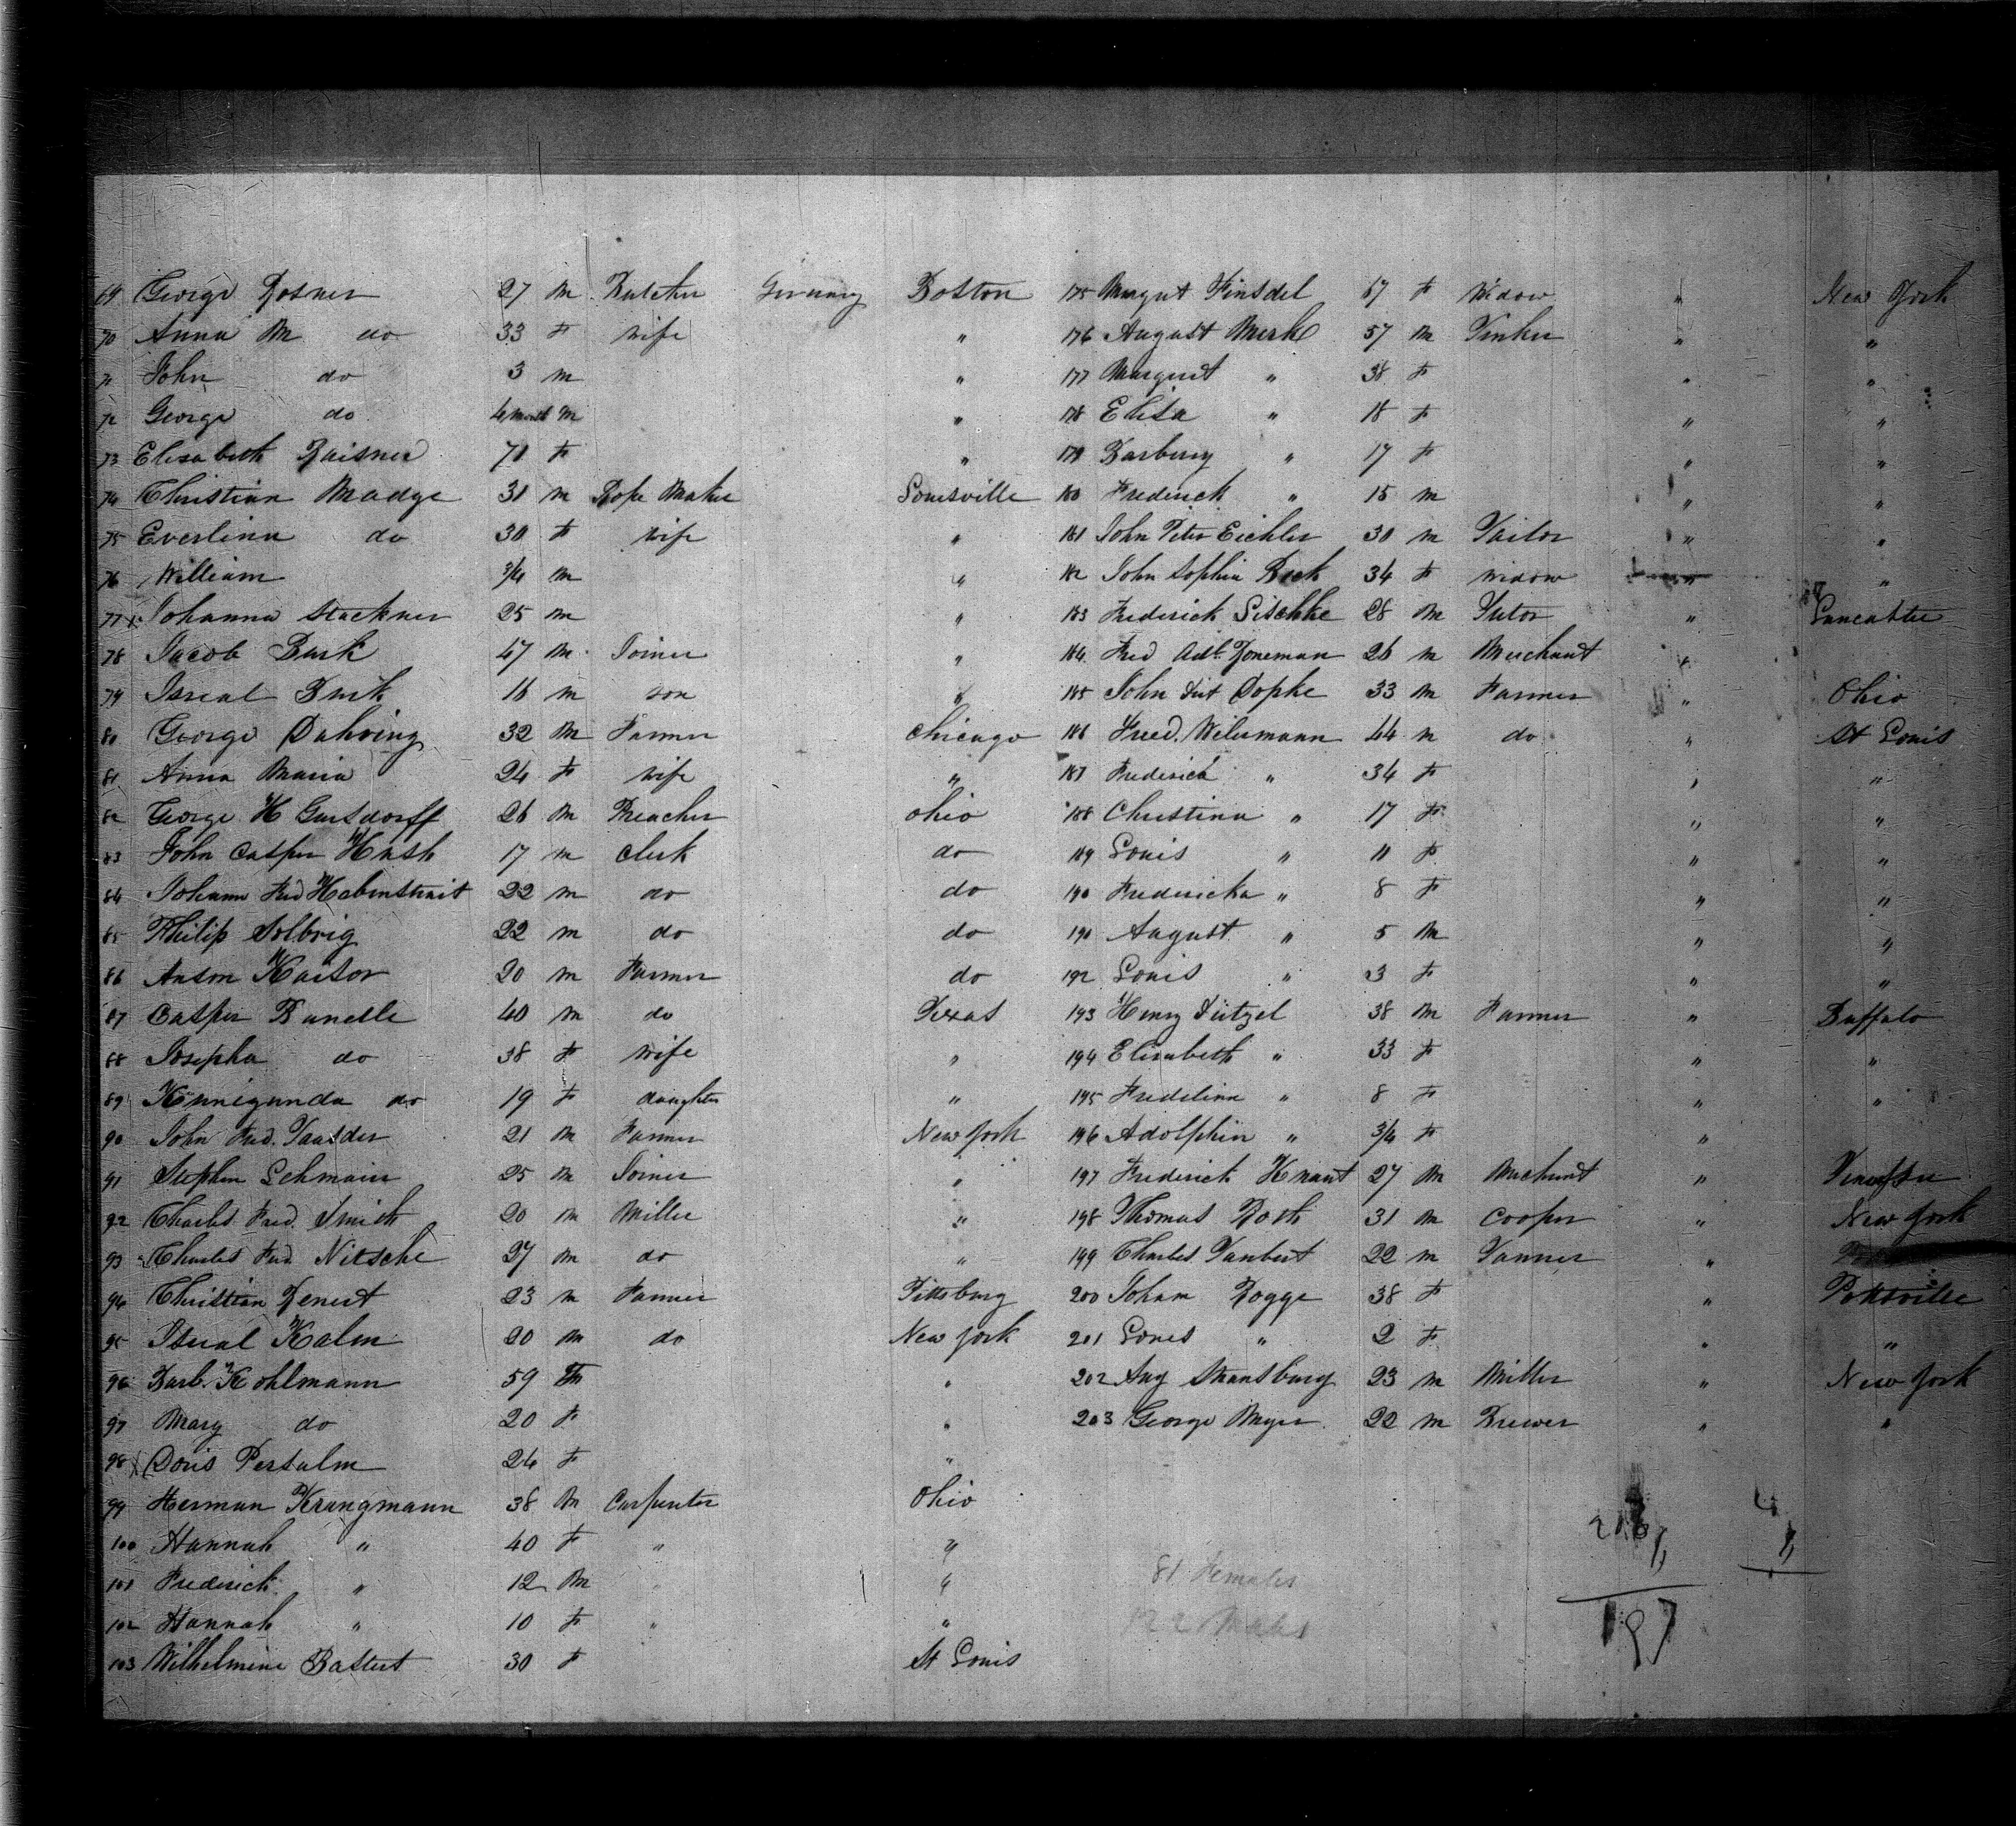 69 George Rosner 27 m Butcher Germany Boston
70 Anna M do 33 F wife "
71 John do 3 m "
72 George do 4 month m "
73 Elisabeth Raisner 71 F "
74 Christian Madge 31 m Rope Maker Louisville
75 Everlina do 30 F wife "
76 William 3/4 m "
77 Johanna Stackner 25 m "
78 Jacob Burk 47 m Joiner "
79 Isreal Burk 16 m son "
80 George Duhring 32 m Farmer Chicago
81 Anna Maria 24 F wife "
82 George H Gursdorff 26 m Preacher Ohio
83 John Casper Hush 17 m Clerk do
84 Johann Fred Habenstrait 22 m do do
85 Philip Solbrig 22 m do do
86 Anton Kaisor 20 m Farmer do
87 Casper Bunelle 40 m do Texas
88 Josepha do 38 F wife "
89 Kunigunda do 19 F daughter "
90 John Fred. 21 m Farmer New York
91 Stephen Lehmair 25 m Joiner "
92 Charles Fred. Smith 20 m Miller "
93 Charles Fred Nitsche 27 m do "
94 Christian Zenert 23 m Farmer Pittsburg
95 Isreal Kalm 20 m do New York
96 Barb. Kohlmann 59 F "
97 Mary do 20 F "
98 x Doris Persalm 24 F "
99 Herman Krungmann 38 m Carpenter Ohio
100 Hannah " 40 F " "
101 Frederick " 12 m " "
102 Hannah " 10 F " "
103 Wilhelmine Bastert 30 F St Louis
175 Margret Finsdel 67 F Widow " New York
176 August Merk 57 m Tinker " "
177 Margret " 38 F " "
178 Elisa " 18 F " "
179 Barberry " 17 F " "
180 Frederick " 15 m " "
181 John Peter Eichler 30 m Tailor " "
182 John Sophia Beck 34 F widow " "
183 Frederick Lischke 28 m Tutor " Lancaster
184 Fred Adt. Zoneman 26 m Merchant "
185 John Dopke 33 m Farmer " Ohio
186 Fred. Wilermann 44 m do " St Louis
187 Frederick " 34 F " "
188 Christina " 17 F " "
189 Louis " 11 F " "
190 Fredericka " 8 F " "
190 August " 5 m " "
192 Louis " 3 F " "
193 Henry Dietzel 38 m Farmer " Buffalo
194 Elisabeth " 33 F " "
195 Fredelina " 8 F " "
196 Adolphin " 3/4 F "
197 Frederick Knaut 27 m Merchant "
198 Thomas Roth 31 m Cooper " New York
199 Charles Taubert 22 m Tanner "
200 Joham Rogge 38 F " Pottsville
201 Loues " 2 F " "
202 Aug Stransburg 23 m Miller " New York
203 George Myer 22 m Brewer " "
81 Females
122 Males
197